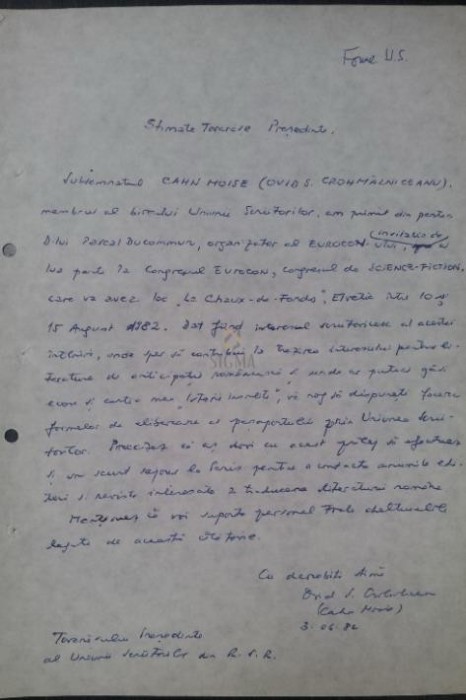 Stimate Tovarășe Președinte,
Subsemnatul CAHN MOISE (OVID S. CROHMĂLNICEANU),
membru al biroului Uniunii Scriitorilor, am primit din partea
D-lui Pascal Ducommun, organizator al EUROCON-ului, invitația de a
lua parte la Congresul Eurocon, congresul de SCIENCE-FICTION,
care va avea loc la Chaux-de-Fonds, Elveția între 10 și
15 August 1982. Dat fiind interesul scriitoricesc al acestei
întâlniri, unde sper să contribui la trezirea interesului pentru li-
teratura de anticipație românească și unde ar putea găsi
ecou și cartea mea "Istorii insolite", vă rog să dispuneți facerea
formelor de eliberare a pașaportului prin Uniunea Scrii-
torilor. Precizez că aș dori cu acest prilej să efectuez
și un scurt sejour la Paris pentru a contacta anumite edi-
turi și reviste interesate a traducerea literaturii române
Menționez că voi suporta personal toate cheltuielile
legate de această călătorie.
Cu deosebită stimă
Ovid S. Crohmălniceanu
(Cahn Moise)
3.06.82
Tovarășului Președinte
al Uniunii Scriitorilor din R.S.R.
SIGMA